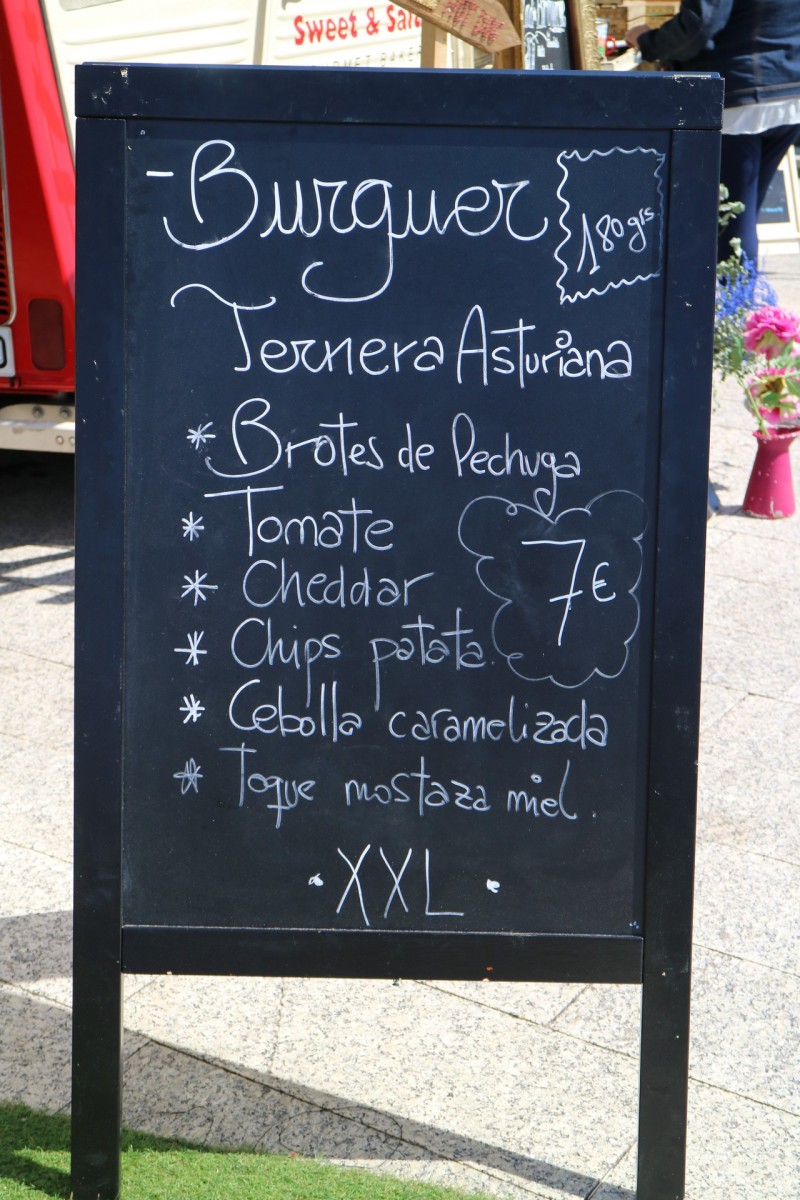 Sweet & Sal
- Burguer
180 grs
Ternera Asturiana
* Brotes de Pechuga
* Tomate
7€
* Cheddar
* Chips patata
* Cebolla caramelizada
* Toque mostaza miel.
· XXL ·